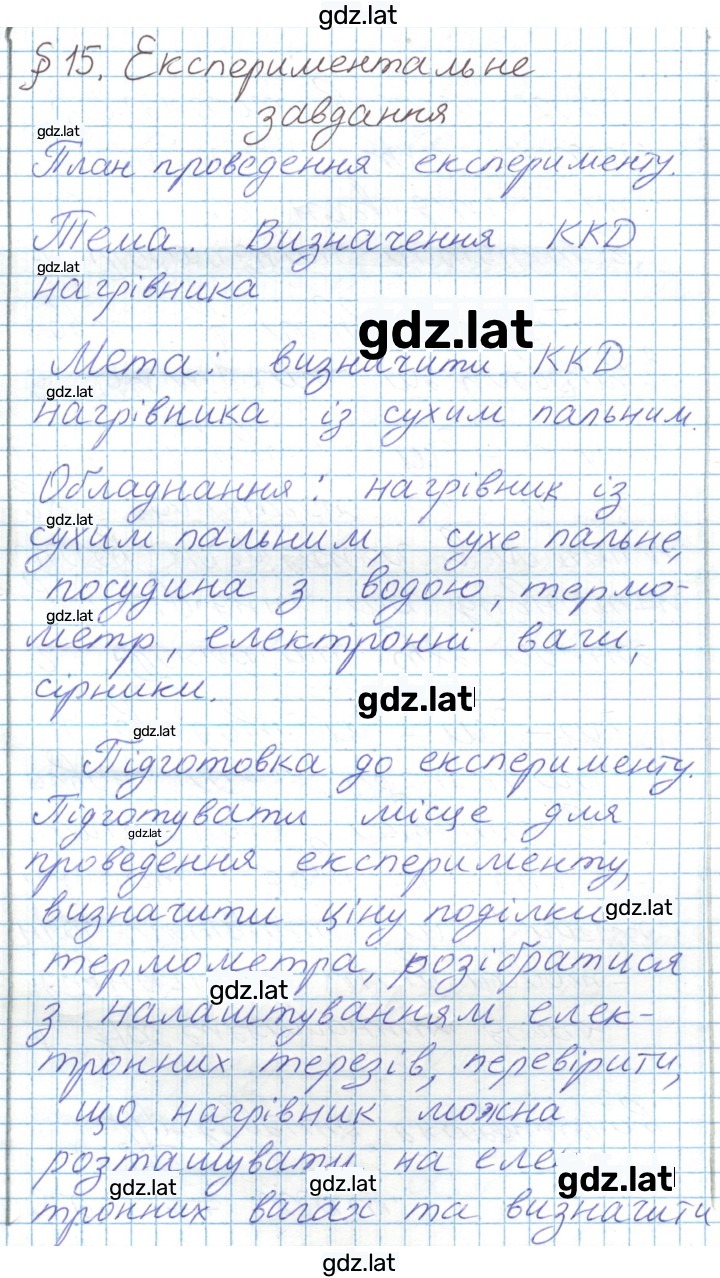 gdz.lat
§ 15. Експериментальне
завдання
gdz.lat
План проведення експерименту.
Тема. Визначення ККД
gdz.lat
нагрівника
gdz.lat
Мета: визначити ККД
gdz.lat
нагрівника із сухим пальним.
Обладнання: нагрівник із
gdz.lat
сухим пальним, сухе пальне,
посудина з водою, термо-
gdz.lat
метр, електронні ваги,
сірники.
gdz.lat
gdz.lat
Підготовка до експерименту.
Підготувати місце для
gdz.lat
проведення експерименту,
визначити ціну поділки
gdz.lat
термометра, розібратися
gdz.lat
з налаштуванням елек-
тронних терезів, перевірити,
що нагрівник можна
розташувати на еле
gdz.lat
gdz.lat
gdz.lat
тронних вагах та визначити
gdz.lat